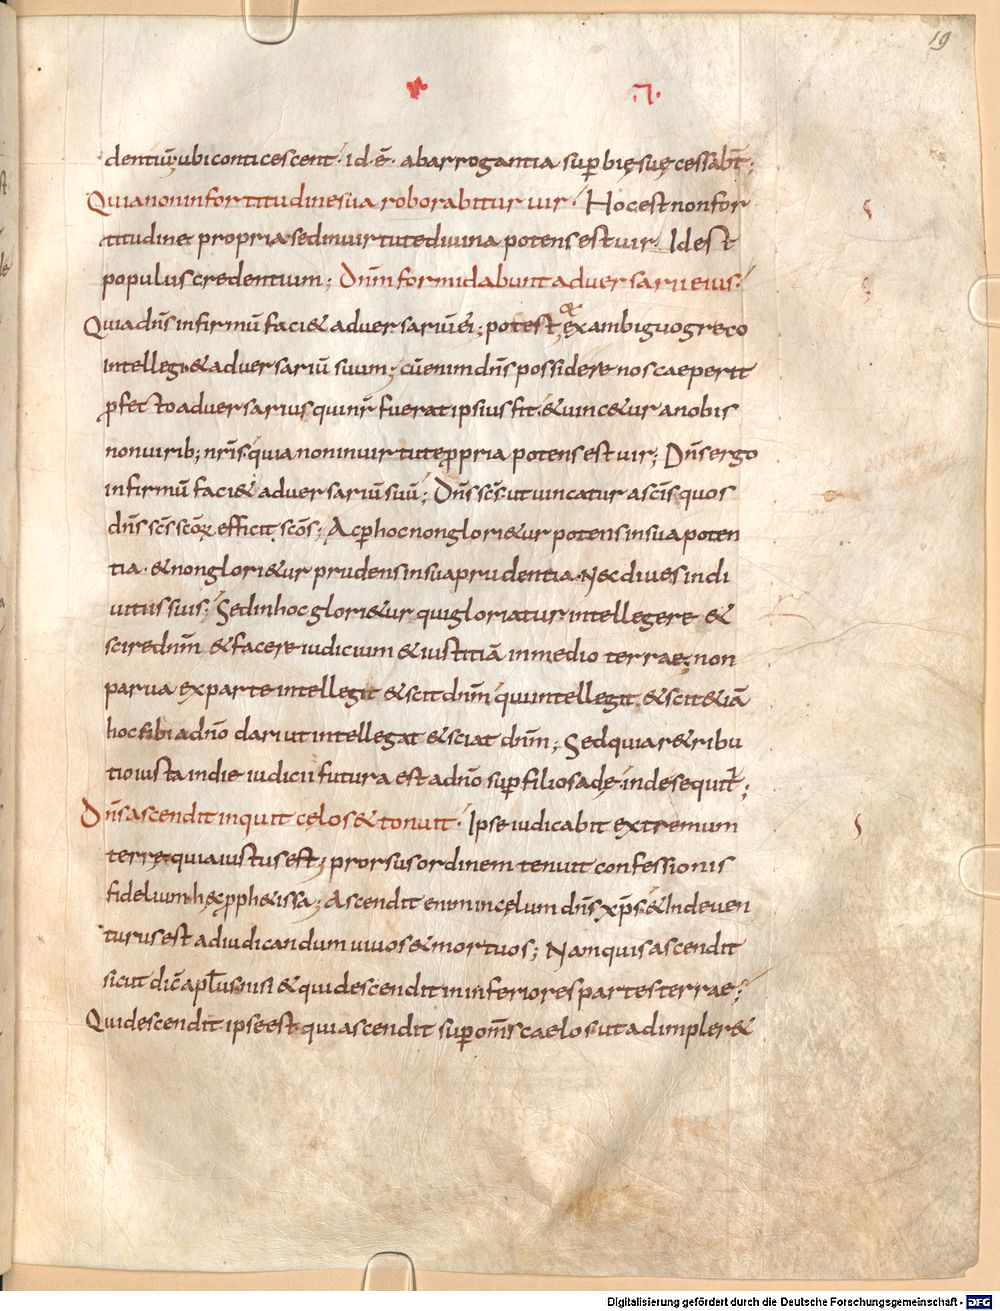 19
dentiū; ubi conticescent· id·ē· ab arrogantia sup̄bię suę cessabt̄;
Quia non in fortitudine sua roborabitur uir· Hoc est non for
titudine propria sed in uirtute diuina potens est uir. Id est
populus credentium; Dnm̄ formidabunt aduersarii eius·
Quia dn̄s infirmū faci& aduersariū ei; potest; ex ambiguo greco
intellegi & aduersariū suum; cū enim dn̄s possidere nos caeperit
ꝓfecto aduersarius qui nr̄ fuerat ipsius fit· & uinc&ur a nobis
non uirib; nr̄is· quia non in uirtute ꝓpria potens est uir; Dn̄s ergo
infirmū faci& aduersariū suū; Dn̄s sc̄s· ut uincatur a sc̄is quos
dn̄s sc̄s sc̄oꝝ efficit sc̄os; Ac ꝑ hoc non glori&ur potens in sua poten
tia· & non glori&ur prudens in sua prudentia· Nec diues in di
uitiis suis· Sed in hoc glori&ur qui gloriatur intellegere &
scire dnm̄ & facere iudicium & iustitiā in medio terrae; non
parua ex parte intellegit & scit dnm̄ qui intellegit & scit &iā
hoc sibi a dn̄o dari ut intellegat & sciat dnm̄; Sed quia r&ribu
tio iusta in die iudicii futura est a dn̄o sup̄ filios adę· inde sequit̄;
Dn̄s ascendit inquit cęlos & tonuit· Ipse iudicabit extremum
terrę quia iustus est; prorsus ordinem tenuit confessionis
fidelium hęc ꝓph&issa; Ascendit enim in celum dn̄s xp̄s· & Inde uen
turus est ad iudicandum uiuos & mortuos; Nam quis ascendit
sicut dic̄ apl̄us· nisi & qui descendit in inferiores partes terrae;
Qui descendit ipse est qui ascendit sup̄ om̄s caelos· ut adimpler&
Digitalisierung gefördert durch die Deutsche Forschungsgemeinschaft - DFG